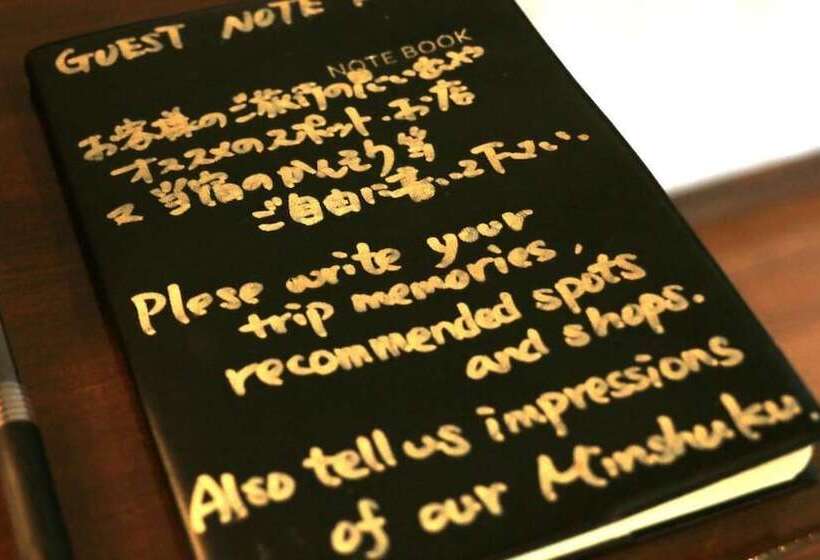 GUEST NOTE
NOTE BOOK
お客様のご旅行の思い出や
オススメのスポット・お店
又当宿のかんそう等
ご自由に書いて下さい。
Plese write your
trip memories,
recommended spots
and shops.
Also tell us impressions
of our Minshuku.